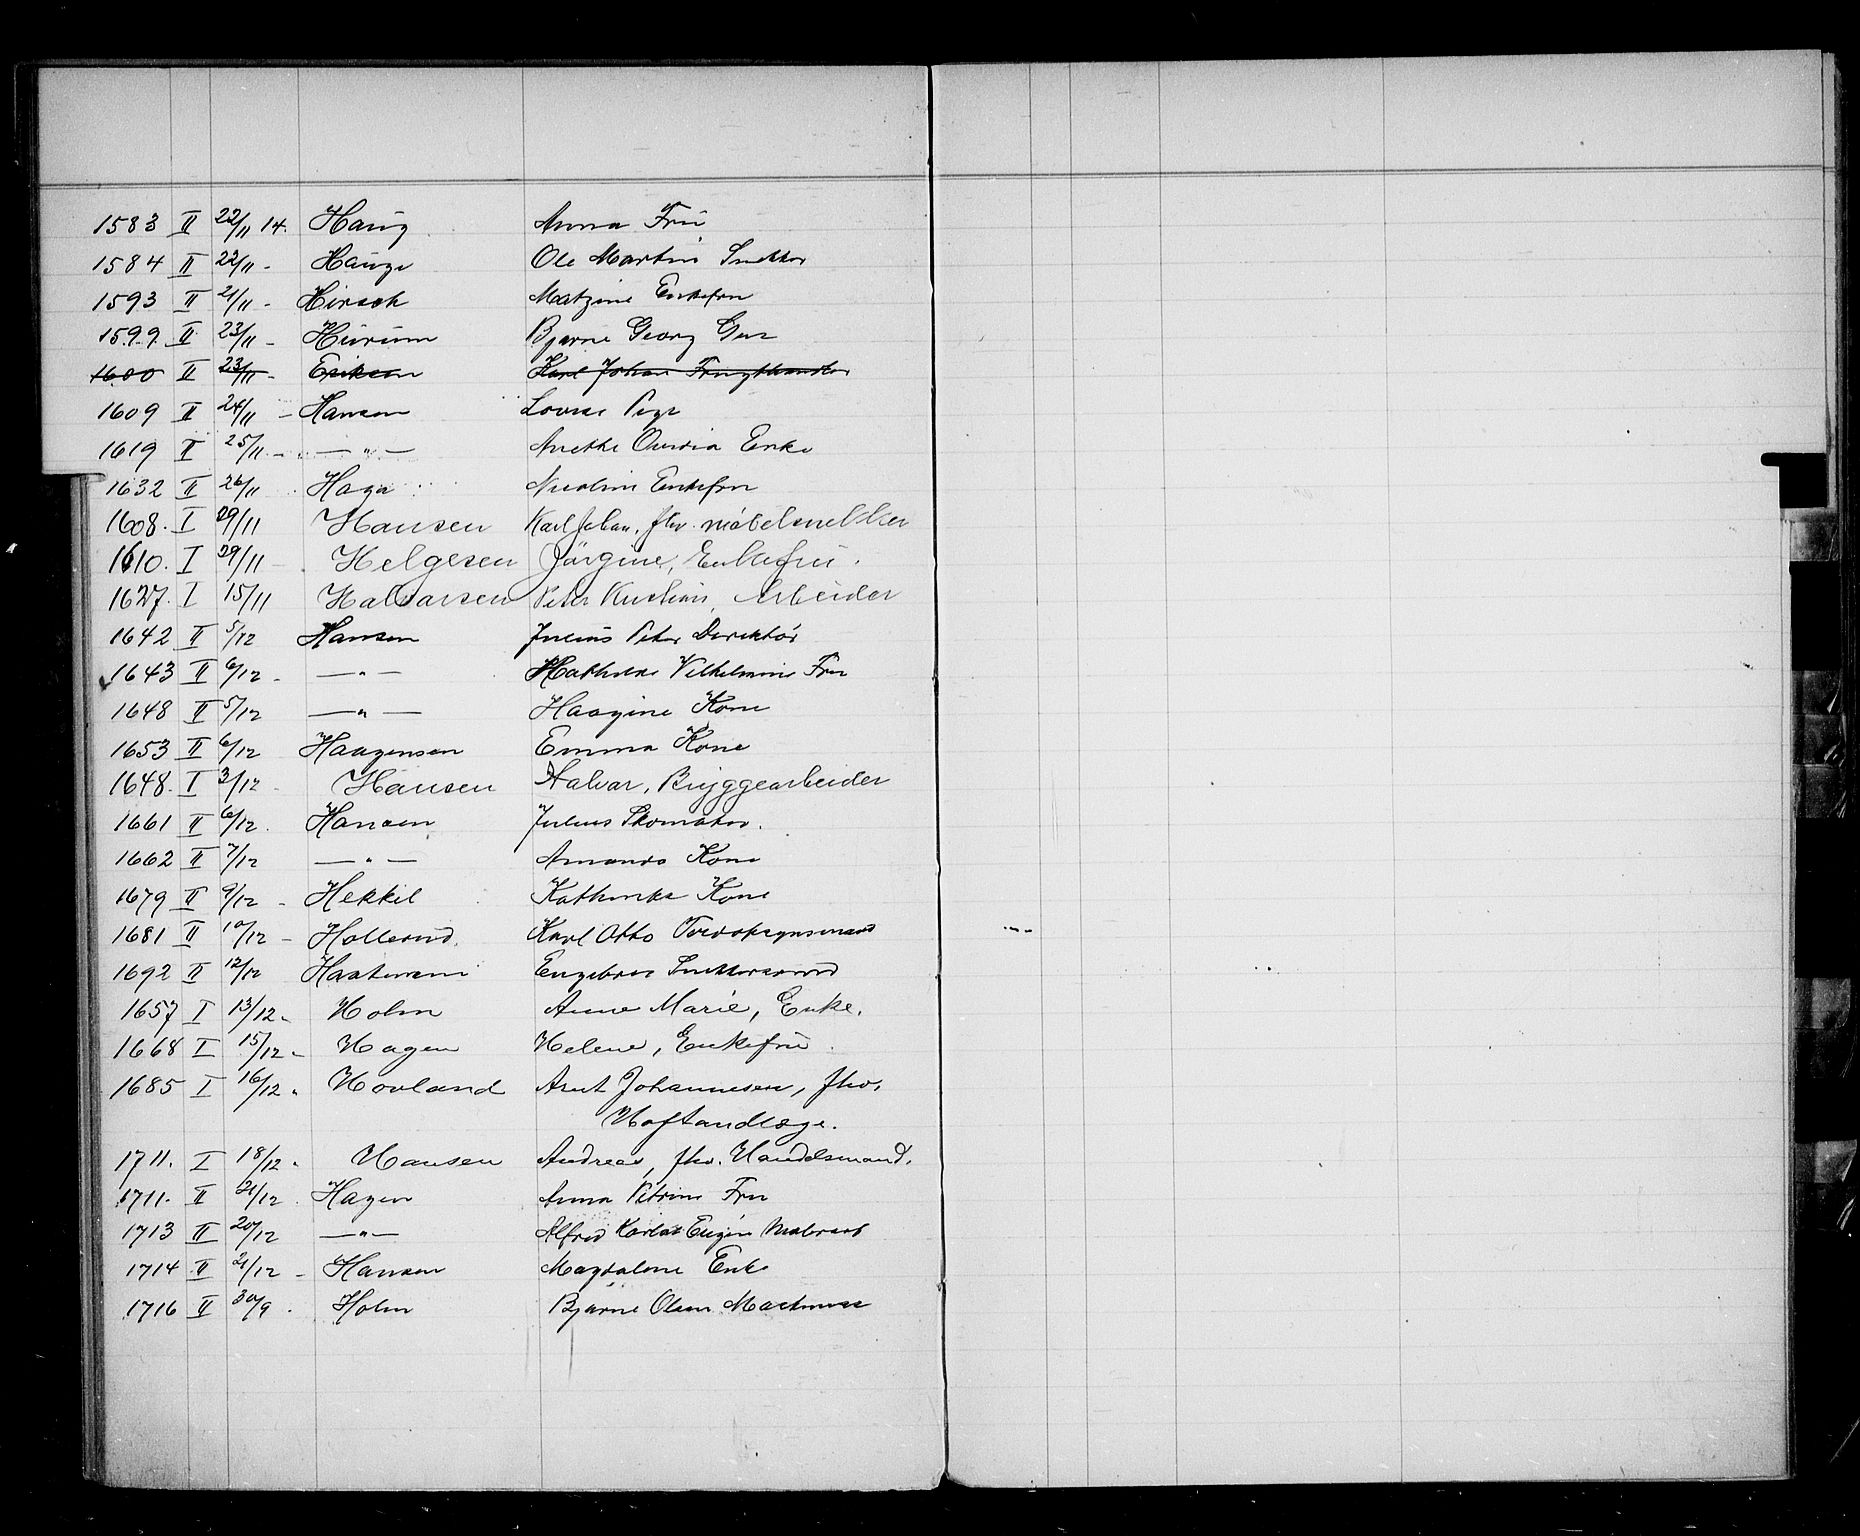 1583 II 22/11 14. Haug Anna Fru
1584 II 22/11 - Hauge Ole Martin Snekker
1593 II 21/11 - Hirsch Matzine Enkefru
1599 II 23/11 - Hurum Bjarne Georg
1600 II 23/11 - Eriksen Karl Johan Frugthandler
1609 II 24/11 - Hansen Lovise Pige
1619 II 25/11 - — " — Anethe Enke
1632 II 26/11 Haga Nicoline Enkefru
1608. I 29/11 Hansen Karl Johan, fhv. møbelsnekker
1610. I 29/11 - Helgesen Jørgine, Enkefru.
1627. I 15/11 Halvorsen Peter Kristian, Arbeider
1642 II 5/12 Hansen Julius Peter Direktør
1643 II 6/12 - — " — Mathilde Vilhelmine Fru
1648 II 5/12 — " — Haagine Kone
1653 II 6/12 Haagensen Emma Kone
1648. I 3/12 - Hansen Halvar, Bryggearbeider
1661 II 6/12. Hansen Julius Skomaker.
1662 II 7/12 — " — Amanda Kone
1679 II 9/12 - Hekkil Kathinka Kone
1681 II 10/12 - Hollerud. Karl Otto
1692 II 12/12 Engebret
1657 I 13/12 - Holm Anne Marie, Enke.
1668 I 15/12 - Hagen Helene, Enkefru.
1685 I 16/12 " Hovland Arnt Johannesen, fhv.
Hoftandlæge.
1711. I 18/12 " Hansen Andreas, fhv. Handelsmand.
1711. II 21/12 Hagen Anna Petrine Fru
1713 II 20/12 — " — Alfred Eugen
1714 II 21/12 - Hansen Magdalene Enke
1716 II 30/9 . Holm Bjarne Olsen